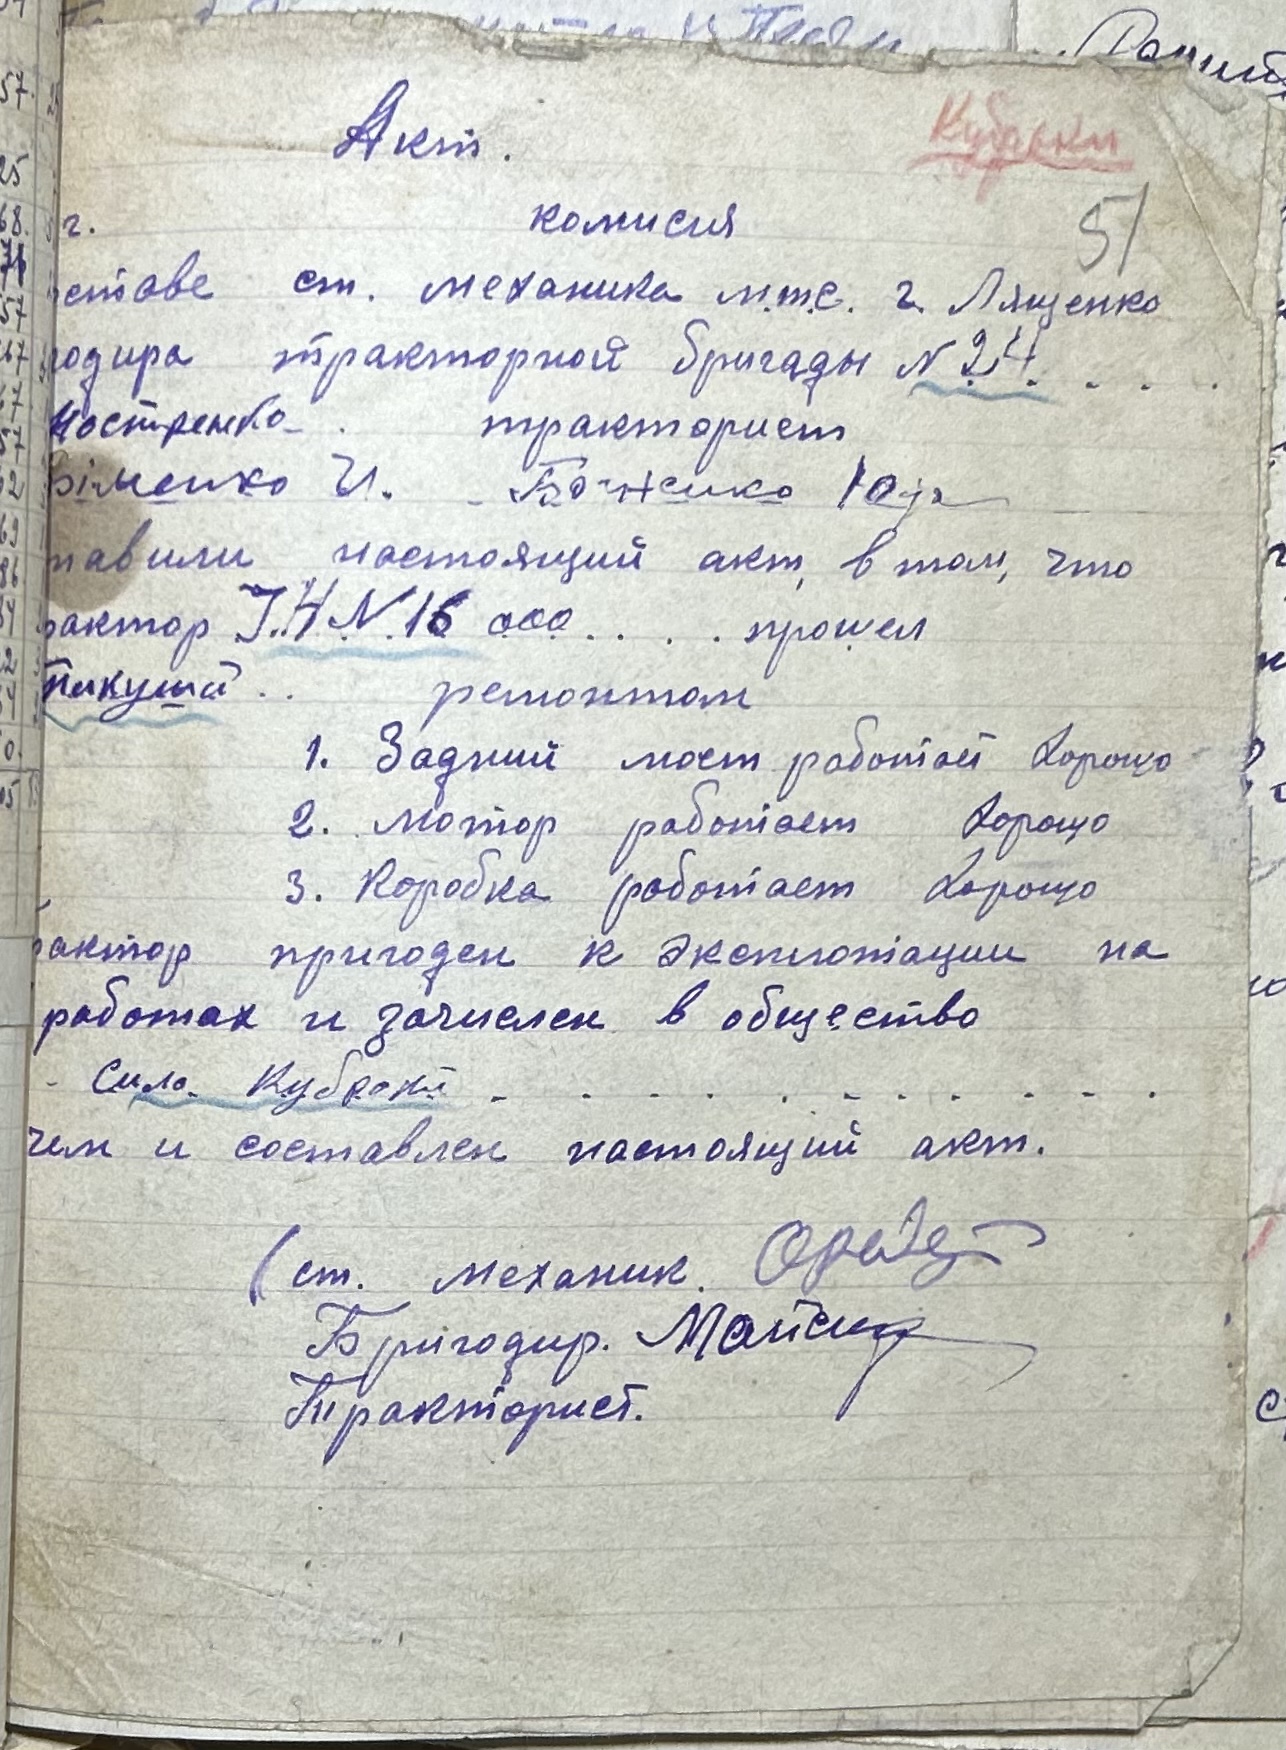 Кубраки
Акт.
51
г. комисия
ставе ст. механика м.т.с. г. Лященко
одира тракторной бригады N 24
тракторист
Біменко И. Боженко
тавили настоящий акт, в том, что
рактор N 16 000 прошел
тикущий ремонтом
1. Задний мост работает хорощо
2. Мотор работает хорощо
3. Коробка работает хорощо
рактор пригоден к эксплотации на
работах и зачислен в общество
Сила Кубраки
чем и составлен настоящий акт.
(ст. механик.
Бригодир.
Тракторист.